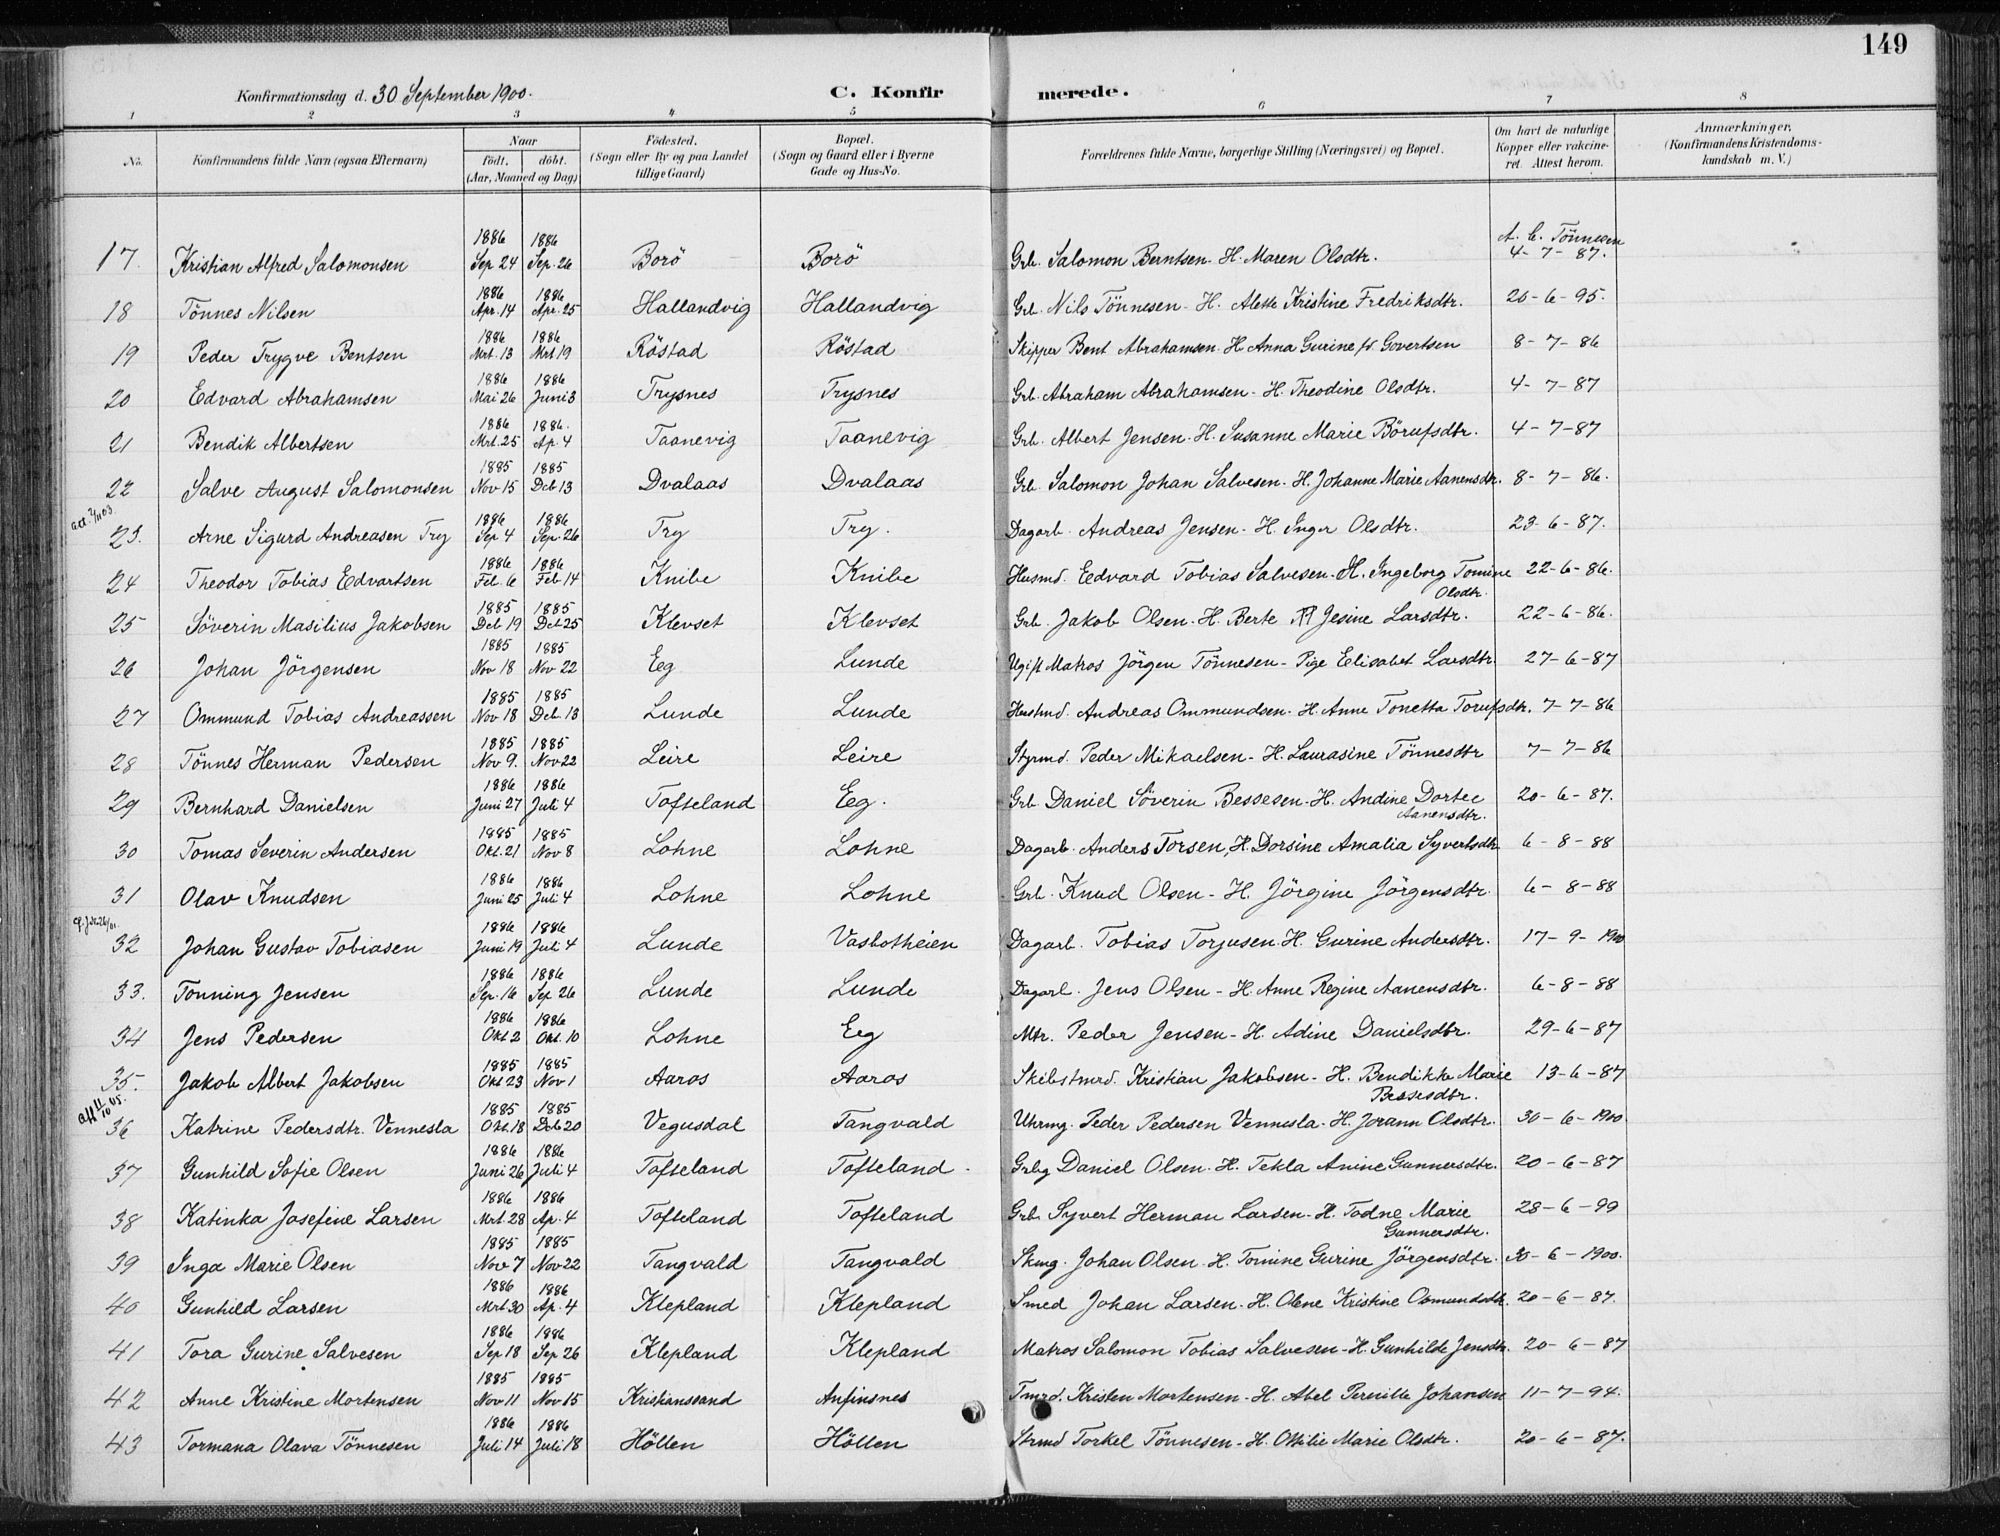 149
Konfirmationsdag d. 30 September 1900. C. Konfirmerede.
1 2 3 4 5 6 7 8
No. Konfirmandens fulde Navn (ogsaa Efternavn) Naar födt. döbt. (Aar, Maaned og Dag) Födested. (Sogn eller By og paa Landet tillige Gaard) Bopæl. (Sogn og Gaard eller i Byerne Gade og Hus-No. Forældrenes fulde Navne, borgerlige Stilling (Næringsvei) og Bopæl. Om havt de naturlige Kopper eller vakcineret. Attest herom. Anmærkninger, (Konfirmandens Kristendomskundskab m. V.)
17. Kristian Alfred Salomonsen 1886 Sep. 24 1886 Sep. 26 Borö Borö Grb. Salomon Berntsen - H. Maren Olsdtr. A. C. Tönnesen 4-7-87.
18 Tönnes Nilsen 1886 Apr. 14 1886 Apr. 25 Hallandvig Hallandvig Grb. Nils Tönnesen - H. Alette Kristine Fredriksdtr. 20-6-95.
19 Peder Trygve Bentsen 1886 Mrt. 13 1886 Mrt 19 Röstad Röstad Skipper Bent Abrahamsen - H. Anna Gurine f. Govertsen 8-7-86
20 Edvard Abrahamsen 1886 Mai 26 1886 Juni 3 Trysnes Trysnes Grb. Abraham Abrahamsen - H. Theodine Olsdtr. 4-7-87
21 Bendik Albertsen 1886 Mrt. 25 1886. Ap. 4 Taanevig Taanevig Grb. Albert Jensen - H. Susanne Marie Börufsdtr. 4-7-87
22 Salve August Salomonsen 1885 Nov 15 1885 Deb 13 Dvalaas Dvalaas Grb. Salomon Johan Salvesen - H. Johanne Marie Aanensdtr. 8-7-86.
23. Arne Sigurd Andreasen Try 1886 Sep 4 1886 Sep. 26 Try Try. Dagarb. Andreas Jensen - H. Inger Olsdtr. 23-6-87.
24 Theodor Tobias Edvartsen 1886 Feb. 6 1886 Feb. 14 Knibe Knibe Husmd. Edvard Tobias Salvesen - H. Ingeborg Tomine Olsdtr. 22-6-86.
25 Söverin Masilius Jakobsen 1885 Deb 19 1885 Deb. 25 Klevset Klevset Grb. Jakob Olsen - H. Berte Jesine Larsdtr. 22-6-86.
26 Johan Jörgensen 1885 Nov 18 1885 Nov 22 Eeg Lunde Ugift Matros Jörgen Tönnesen - Pige Elisabet Larsdtr. 27-6-87
27 Ommund Tobias Andreassen 1885 Nov 18 1885 Deb. 13 Lunde Lunde Husmd. Andreas Ommundsen - H. Anne Tonetta Torufsdtr. 7-7-86
28 Tönnes Herman Pedersen 1885 Nov 9. 1885 Nov 22 Leire Leire Styrmd. Peder Mikaelsen - H. Laurasine Tönnesdtr 7-7-86
29 Bernhard Danielsen 1886 Juni 27 1886 Juli 4 Tofteland Eeg. Grb Daniel Söverin Bessesen - H. Andine Dortec Aanensdtr. 20-6-87.
30 Tomas Severin Andersen 1885 Okt. 21 1885 Nov 8 Lohne Lohne Dagarb. Anders Torsen, H. Dorsine Amalia Syvertsdtr 6-8-88
31 Olav Knudsen 1886 Juni 25 1886 Juli 4 Lohne Lohne Grb. Knud Olsen - H. Jörgine Jörgensdtr. 6-8-88
32 Johan Gustav Tobiasen 1886 Juni 19 1886 Juli 4 Lunde Vasbotheien Dagarb. Tobias Torjusen - H. Gurine Andersdtr. 17-9-1900
33. Tonning Jensen 1886 Sep. 16 1886 Sep 26 Lunde Lunde Dagarb. Jens Olsen - H. Anne Regine Aanensdtr. 6-8-88
34 Jens Pedersen 1886 Okt. 2 1886 Okt. 10 Lohne Eeg Mtr. Peder Jensen - H. Adine Danielsdtr. 29-6-87
35. Jakob Albert Jakobsen 1885 Okt 23 1885 Nov 1 Aaros Aaros Skibstmrd. Kristian Jakobsen - H. Bendikke Marie Bessesdtr. 13-6-87
36 Katrine Pedersdtr. Vennesla 1885 Okt. 18 1885 Deb 20 Vegusdal Tangvald Uhrmg. Peder Pedersen Vennesla - H. Jorann Olsdtr. 30-6-1900
37 Gunhild Sofie Olsen 1886 Juni 26 1886 Juli 4 Tofteland Tofteland Grbg Daniel Olsen - H. Tekla Anine Gunnersdtr. 20-6-87
38 Katinka Josefine Larsen 1886 Mrt. 28 1886 Ap. 4 Tofteland Tofteland Grb. Syvert Herman Larsen - H. Todne Marie Gunnersdtr. 28-6-99
39 Inga Marie Olsen 1885 Nov 7 1885 Nov 22 Tangvald Tangvald Skmg. Johan Olsen - H. Tomine Gurine Jörgensdtr. 30-6-1900.
40 Gunhild Larsen 1886 Mrt. 30 1886 Ap. 4 Klepland Klepland Smed Johan Larsen - H. Olene Kristine Osmundsdtr. 20-6-87.
41 Tora Gurine Salvesen 1886 Sep 18 1886 Sep 26 Klepland Klepland Matros Salomon Tobias Salvesen - H. Gunhilde Jensdtr. 20-6-87
42 Anne Kristine Mortensen 1885 Nov 11 1885 Nov 15 Kristianssand Anfinsnes Tmrd. Kristen Mortensen - H. Abel Pernille Johansen 11-7-94.
43 Tormana Olava Tönnesen 1886 Juli 14 1886 Juli 18 Höllen Höllen Strmd Torkel Tönnesen - H. Ottilie Marie Olsdtr. 20-6-87.